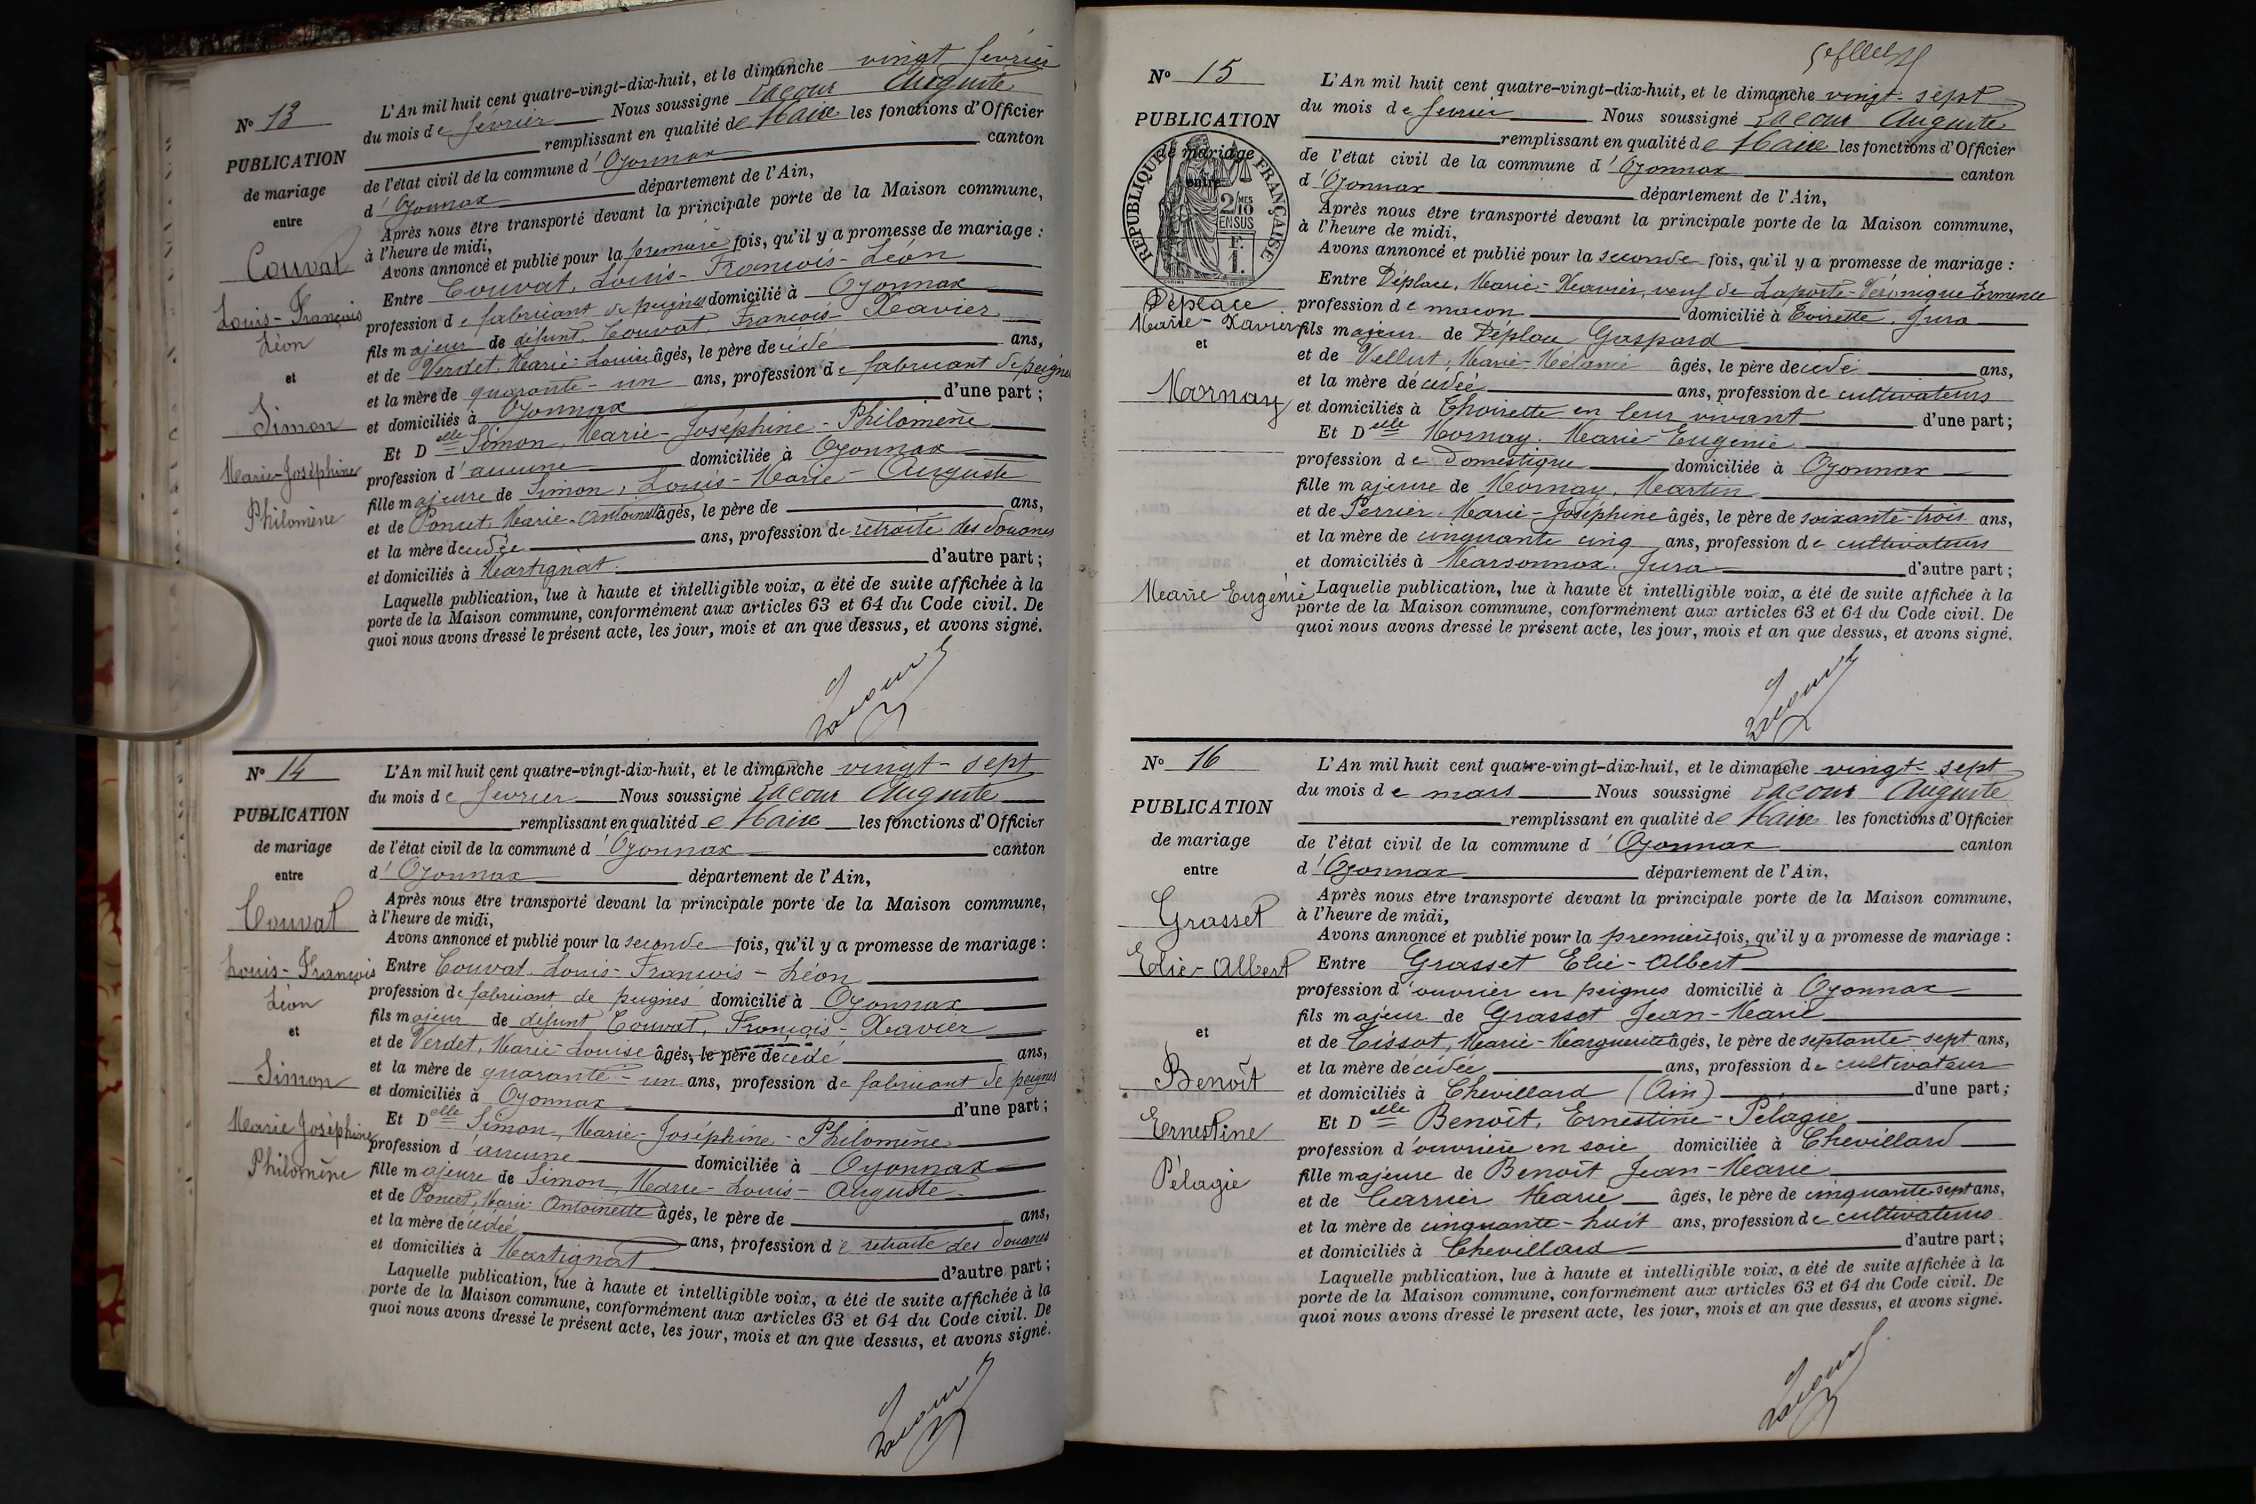 N° 13
PUBLICATION
de mariage
entre
Couvat
Louis-François
Léon
et
Simon
Marie-Joséphine
Philomène
L'An mil huit cent quatre-vingt-dix-huit, et le dimanche vingt février
du mois de février Nous soussigné Lacour Auguste
remplissant en qualité de Maire les fonctions d'Officier
de l'état civil de la commune d'Oyonnax canton
d'Oyonnax département de l'Ain,
Après nous être transporté devant la principale porte de la Maison commune,
à l'heure de midi,
Avons annoncé et publié pour la première fois, qu'il y a promesse de mariage :
Entre Couvat, Louis-François-Léon
profession de fabricant de peignes domicilié à Oyonnax
fils majeur de défunt Couvat, François-Xavier
et de Verdet, Marie-Louise âgés, le père décédé ans,
et la mère de quarante-un ans, profession de fabricant de peignes
et domiciliés à Oyonnax d'une part ;
Et Delle Simon, Marie-Joséphine-Philomène
profession d'aucune domiciliée à Oyonnax
fille majeure de Simon, Louis-Marie-Auguste
et de Poncet, Marie-Antoinette âgés, le père de ans,
et la mère décédée ans, profession de retraité des douanes
et domiciliés à Martignat d'autre part ;
Laquelle publication, lue à haute et intelligible voix, a été de suite affichée à la
porte de la Maison commune, conformément aux articles 63 et 64 du Code civil. De
quoi nous avons dressé le présent acte, les jour, mois et an que dessus, et avons signé.
Lacour
N° 14
PUBLICATION
de mariage
entre
Couvat
Louis-François
Léon
et
Simon
Marie Joséphine
Philomène
L'An mil huit cent quatre-vingt-dix-huit, et le dimanche vingt-sept
du mois de février Nous soussigné Lacour Auguste
remplissant en qualité de Maire les fonctions d'Officier
de l'état civil de la commune d'Oyonnax canton
d'Oyonnax département de l'Ain,
Après nous être transporté devant la principale porte de la Maison commune,
à l'heure de midi,
Avons annoncé et publié pour la seconde fois, qu'il y a promesse de mariage :
Entre Couvat Louis-François-Léon
profession de fabricant de peignes domicilié à Oyonnax
fils majeur de défunt Couvat, François-Xavier
et de Verdet, Marie-Louise âgés, le père décédé ans,
et la mère de quarante-un ans, profession de fabricant de peignes
et domiciliés à Oyonnax d'une part ;
Et Delle Simon, Marie-Joséphine-Philomène
profession d'aucune domiciliée à Oyonnax
fille majeure de Simon, Marie-Louis-Auguste
et de Poncet, Marie Antoinette âgés, le père de ans,
et la mère décédée ans, profession de retraité des douanes
et domiciliés à Martignat d'autre part ;
Laquelle publication, lue à haute et intelligible voix, a été de suite affichée à la
porte de la Maison commune, conformément aux articles 63 et 64 du Code civil. De
quoi nous avons dressé le présent acte, les jour, mois et an que dessus, et avons signé.
Lacour
N° 15
PUBLICATION
de mariage
entre
RÉPUBLIQUE FRANÇAISE
2/10MES
EN SUS
F.
1.
Déplace
Marie-Xavier
et
Mornay
Marie Eugénie
L'An mil huit cent quatre-vingt-dix-huit, et le dimanche vingt-sept
du mois de février Nous soussigné Lacour Auguste
remplissant en qualité de Maire les fonctions d'Officier
de l'état civil de la commune d'Oyonnax canton
d'Oyonnax département de l'Ain,
Après nous être transporté devant la principale porte de la Maison commune,
à l'heure de midi,
Avons annoncé et publié pour la seconde fois, qu'il y a promesse de mariage :
Entre Déplace, Marie-Xavier, veuf de Laporte-Véronique Ermence
profession de maçon domicilié à Coirette, Jura
fils majeur de Déplace Gaspard
et de Vellut, Marie-Mélanie âgés, le père décédé ans,
et la mère décédée ans, profession de cultivateurs
et domiciliés à Thoirette en leur vivant d'une part ;
Et Delle Mornay, Marie Eugénie
profession de domestique domiciliée à Oyonnax
fille majeure de Mornay, Martin
et de Perrier, Marie-Joséphine âgés, le père de soixante-trois ans,
et la mère de cinquante cinq ans, profession de cultivateurs
et domiciliés à Marsonnax, Jura d'autre part ;
Laquelle publication, lue à haute et intelligible voix, a été de suite affichée à la
porte de la Maison commune, conformément aux articles 63 et 64 du Code civil. De
quoi nous avons dressé le présent acte, les jour, mois et an que dessus, et avons signé.
Lacour
N° 16
PUBLICATION
de mariage
entre
Grasset
Elie-Albert
et
Benoît
Ernestine
Pélagie
L'An mil huit cent quatre-vingt-dix-huit, et le dimanche vingt-sept
du mois de mars Nous soussigné Lacour Auguste
remplissant en qualité de Maire les fonctions d'Officier
de l'état civil de la commune d'Oyonnax canton
d'Oyonnax département de l'Ain,
Après nous être transporté devant la principale porte de la Maison commune,
à l'heure de midi,
Avons annoncé et publié pour la première fois, qu'il y a promesse de mariage :
Entre Grasset Elie-Albert
profession d'ouvrier en peignes domicilié à Oyonnax
fils majeur de Grasset Jean-Marie
et de Tissot, Marie-Marguerite âgés, le père de septante-sept ans,
et la mère décédée ans, profession de cultivateur
et domiciliés à Chevillard (Ain) d'une part ;
Et Delle Benoît, Ernestine-Pélagie
profession d'ouvrière en soie domiciliée à Chevillard
fille majeure de Benoît Jean-Marie
et de Carrier Marie âgés, le père de cinquante-sept ans,
et la mère de cinquante-huit ans, profession de cultivateurs
et domiciliés à Chevillard d'autre part ;
Laquelle publication, lue à haute et intelligible voix, a été de suite affichée à la
porte de la Maison commune, conformément aux articles 63 et 64 du Code civil. De
quoi nous avons dressé le présent acte, les jour, mois et an que dessus, et avons signé.
Lacour